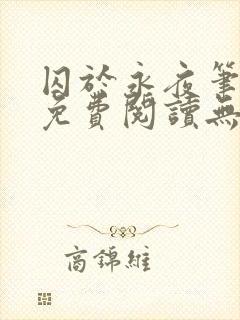 囚於永夜筆
免費閱讀無
高錦維